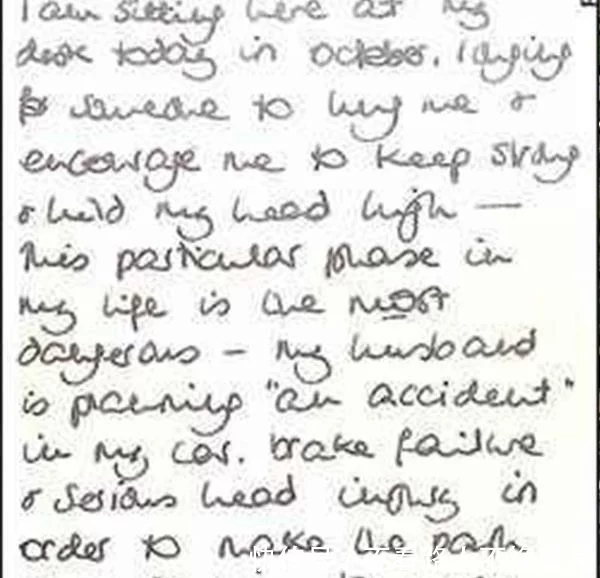 I am sitting here at my
desk today in october, longing
for someone to hug me &
encourage me to keep strong
& hold my head high —
This particular phase in
my life is the most
dangerous – my husband
is planning "an accident"
in my car. brake failure
& serious head injury in
order to make the path